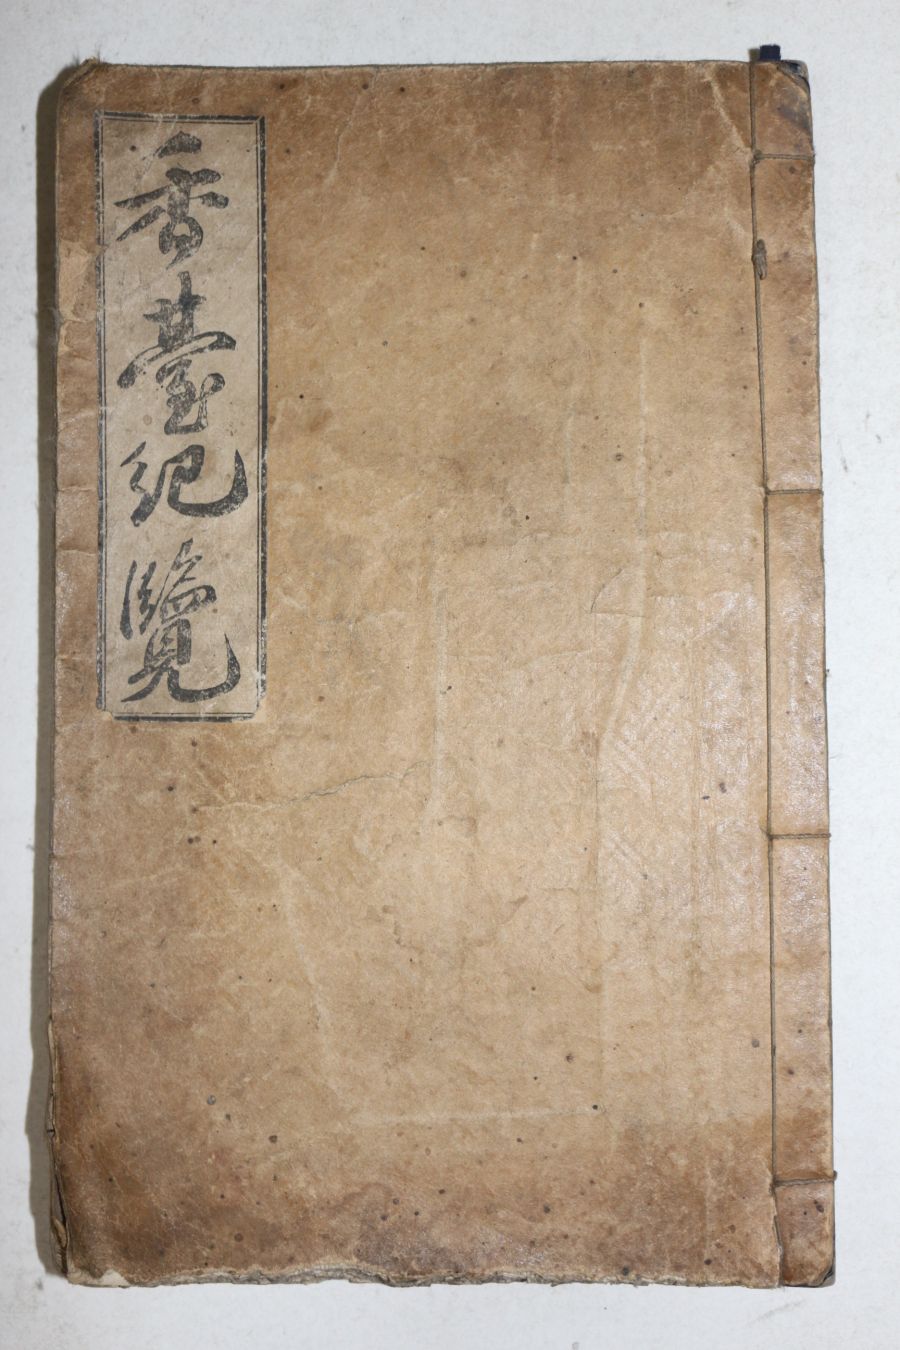 香臺紀覽